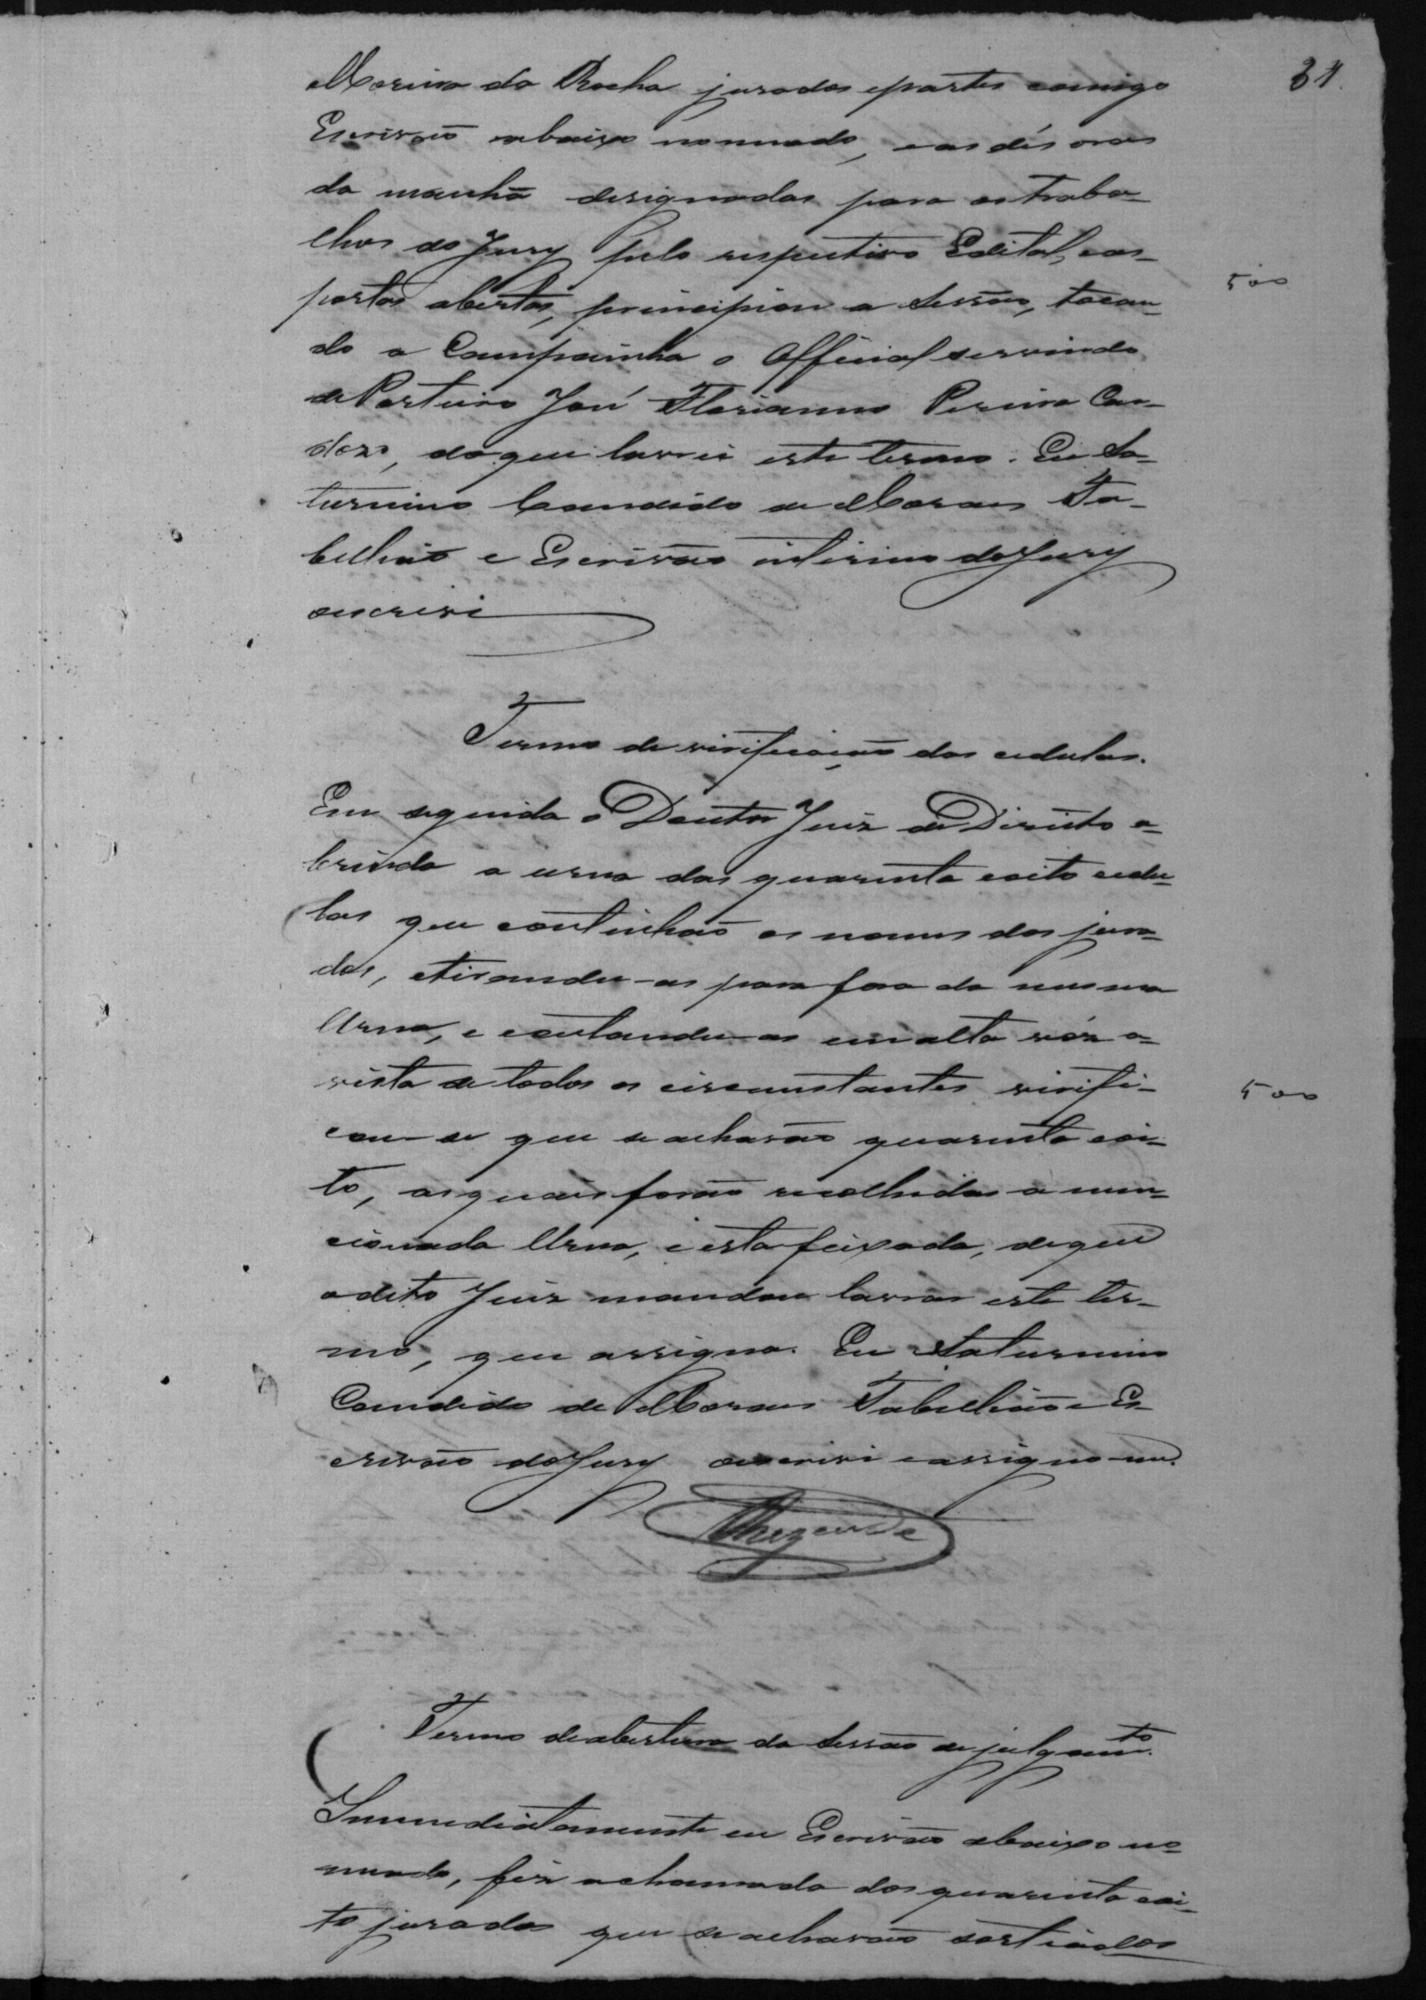 31.
Moreira da Rocha jurados e partes comigo
Escrivão abaixo nomeado, e as dés oras
da manhã designadas para os traba-
lhos do Jury pelo respectivo Edital, as
portas abertas, principiou a Sessão, tocan-
500
do a Campainha o Official servindo
de Porteiro José Florianno Pereira Car-
dozo, do que lavrei este termo. Eu Sa-
turnino Candido de Moraes Ta-
bellião e Escrivão interino do Jury
escrevi
Termo de verificação das cedulas.
Em seguida o Doutor Juiz de Direito a-
brindo a urna das quarenta e oito cedu-
las que continhão os nomes dos jura-
dos, e tirando-as para fora da mesma
Urna, e contando-as em alta vóz a-
vista de todos os circunstantes verifi-
500
cou-se que se acharão quarenta e oi-
to, as quais forão recolhidas a men-
cionada Urna, e esta feixada, de que
o dito Juiz mandou lavrar este ter-
mo, que assigna. Eu Saturnino
Candido de Moraes Tabellião e Es-
crivão do Jury escrevi e assigno-me.
Rezende
Termo de abertura da Sessão de julgamto.
Immediatamente eu Escrivão abaixo no-
meado, fiz a chamada dos quarenta e oi-
to jurados que se acharão sorteados